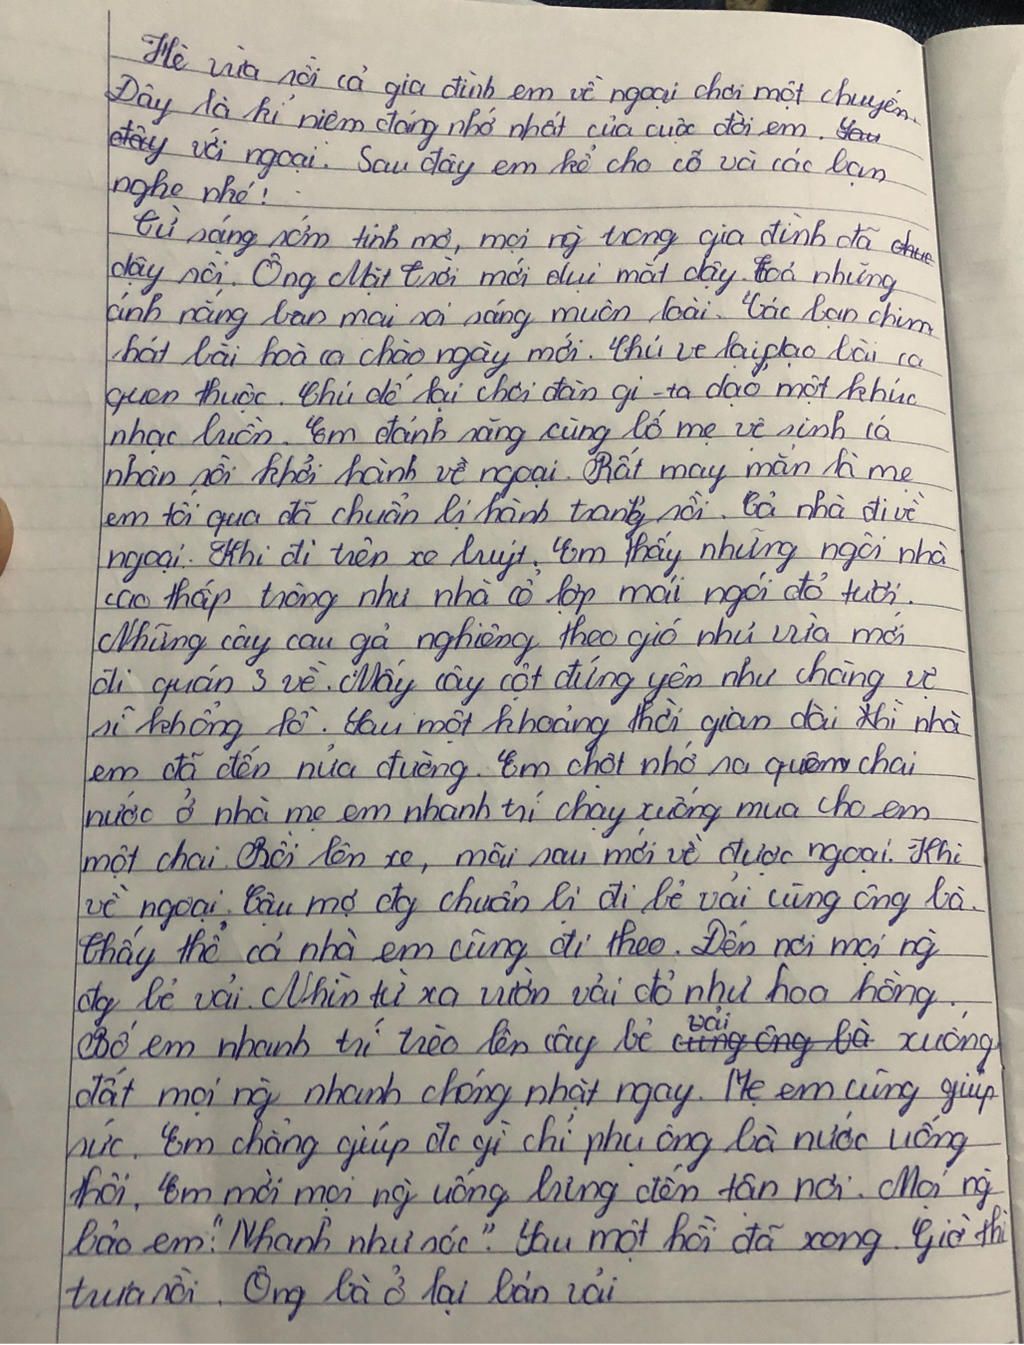 Hè vừa rồi cả gia đình em về ngoại chơi một chuyến.
Đây là kỉ niệm đáng nhớ nhất của cuộc đời em. Sau
đây với ngoại. Sau đây em kể cho cô và các bạn
nghe nhé!
Từ sáng sớm tinh mơ, mọi ng̀ trong gia đình đã
dậy rồi. Ông Mặt Trời mới dụi mắt dậy. Toả những
ánh nắng ban mai rọi sáng muôn loài. Các bạn chim
hát bài hoà ca chào ngày mới. Chú ve lại dạo bài ca
quen thuộc. Chú dế lại chơi đàn gi-ta dạo một khúc
nhạc buồn. Em đánh răng cùng bố mẹ vệ sinh cá
nhân rồi khởi hành về ngoại. Rất may mắn là mẹ
em tối qua đã chuẩn bị hành trang rồi. Cả nhà đi về
ngoại. Khi đi trên xe buýt. Em thấy những ngôi nhà
cao thấp trông như nhà cổ lợp mái ngói đỏ tươi.
Những cây cau gả nghiêng theo gió như vừa mới
đi quán 3 về. Mấy cây cột đứng yên như chàng vệ
sĩ khổng lồ. Sau một khoảng thời gian dài thì nhà
em đã đến nửa đường. Em chợt nhớ ra quên chai
nước ở nhà mẹ em nhanh trí chạy xuống mua cho em
một chai. Rồi lên xe, mãi sau mới về được ngoại. Khi
về ngoại. Cậu mợ đg chuẩn bị đi bẻ vải cùng ông bà.
Thấy thế cả nhà em cũng đi theo. Đến nơi mọi ng̀
đg bẻ vải. Nhìn từ xa vườn vải đỏ như hoa hồng.
Bố em nhanh trí trèo lên cây bẻ vải cùng ông bà xuống
đất mọi ng̀ nhanh chóng nhặt ngay. Mẹ em cũng giúp
sức. Em chẳng giúp đc gì chỉ phụ ông bà nước uống
thôi. Em mời mọi ng̀ uống bưng đến tận nơi. Mọi ng̀
bảo em: "Nhanh như sóc". Sau một hồi đã xong. Giờ thì
trưa rồi. Ông bà ở lại bán vải